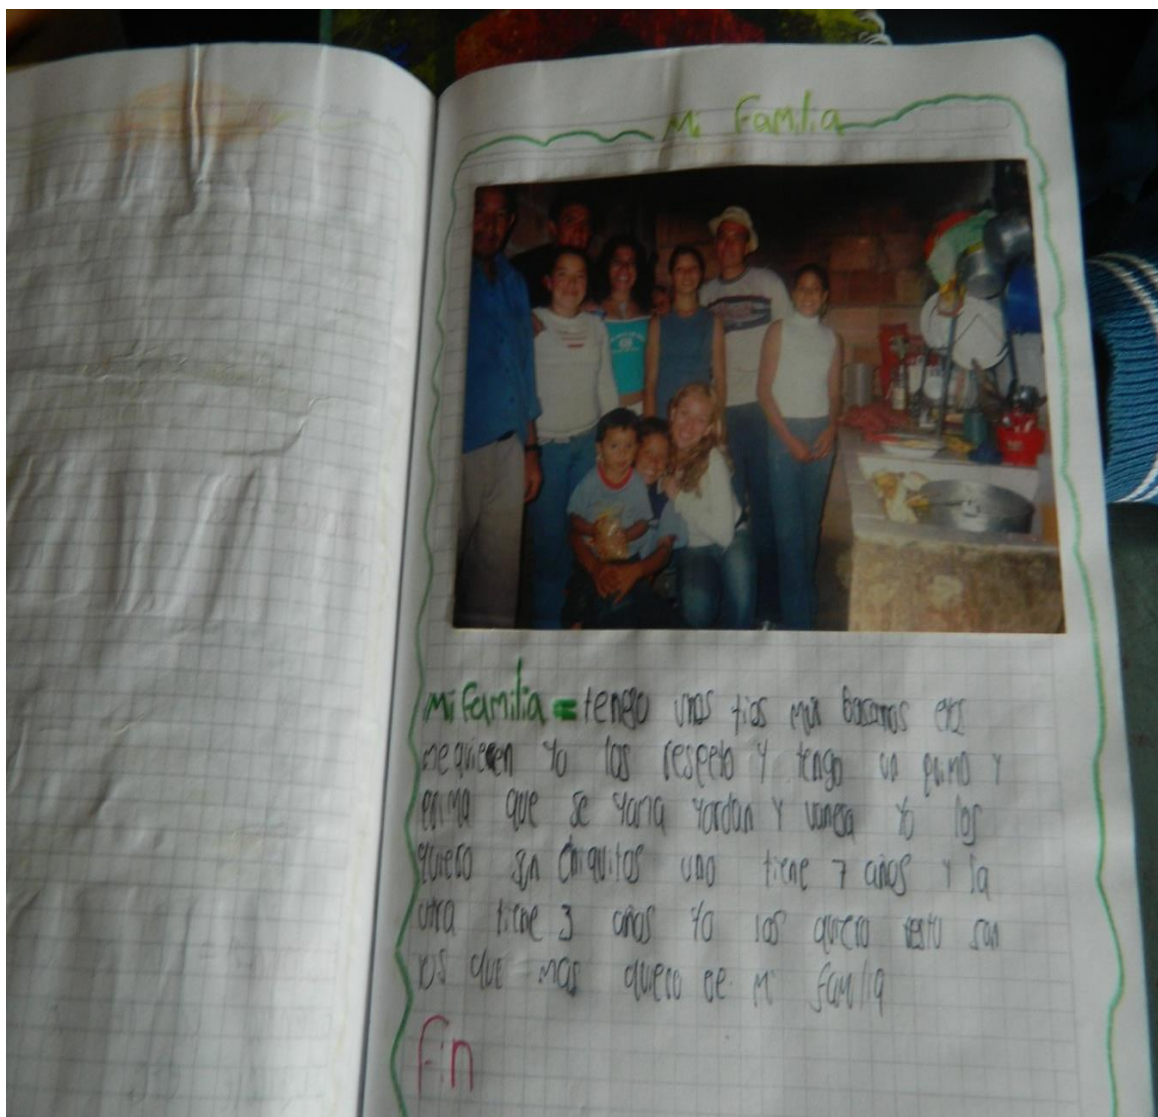 Mi Familia
Mi familia = tengo unos tios muy bacanos ellos
me quieren yo los respeto y tengo un primo y
prima que se yama yordan y vanesa yo los
quiero son chiquitos uno tiene 7 años y la
otra tiene 3 años yo los quiero resto son
los que mas quiero de mi familia
Fin